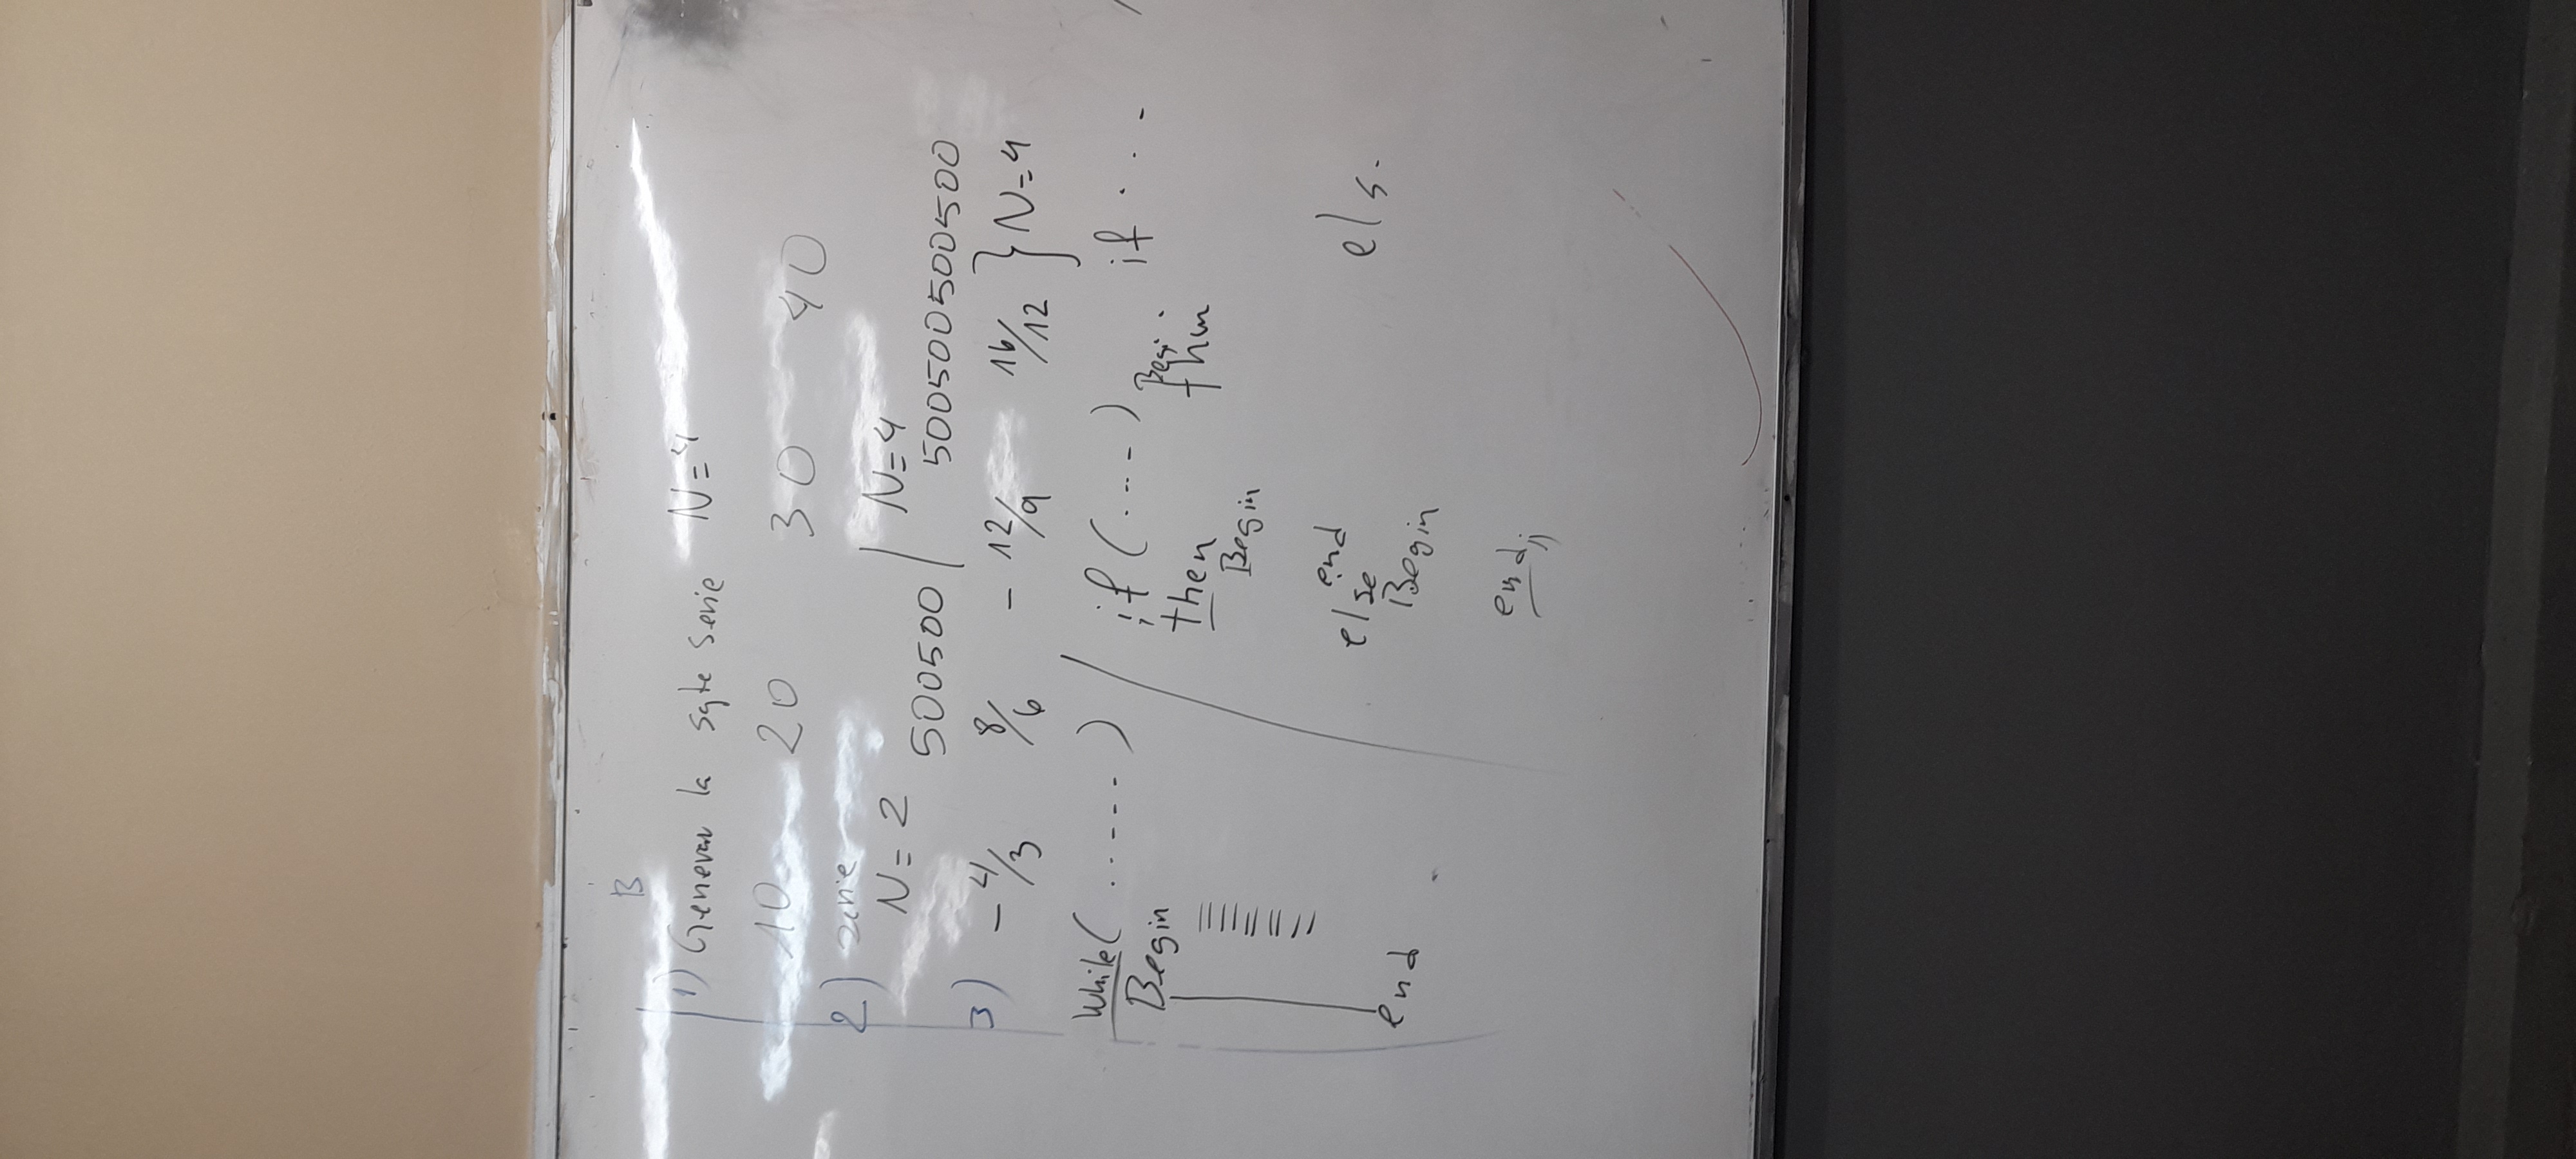 B
1) Generar la sgte serie N=4
10 20 30 40
2) serie
N=2 500500 | N=4 500500500500
3) -4/3 8/6 -12/9 16/12 } N=4
While(......) / if (....) if ....
Begin then Begi. then
Begin
end
else els.
Begin
end
end;